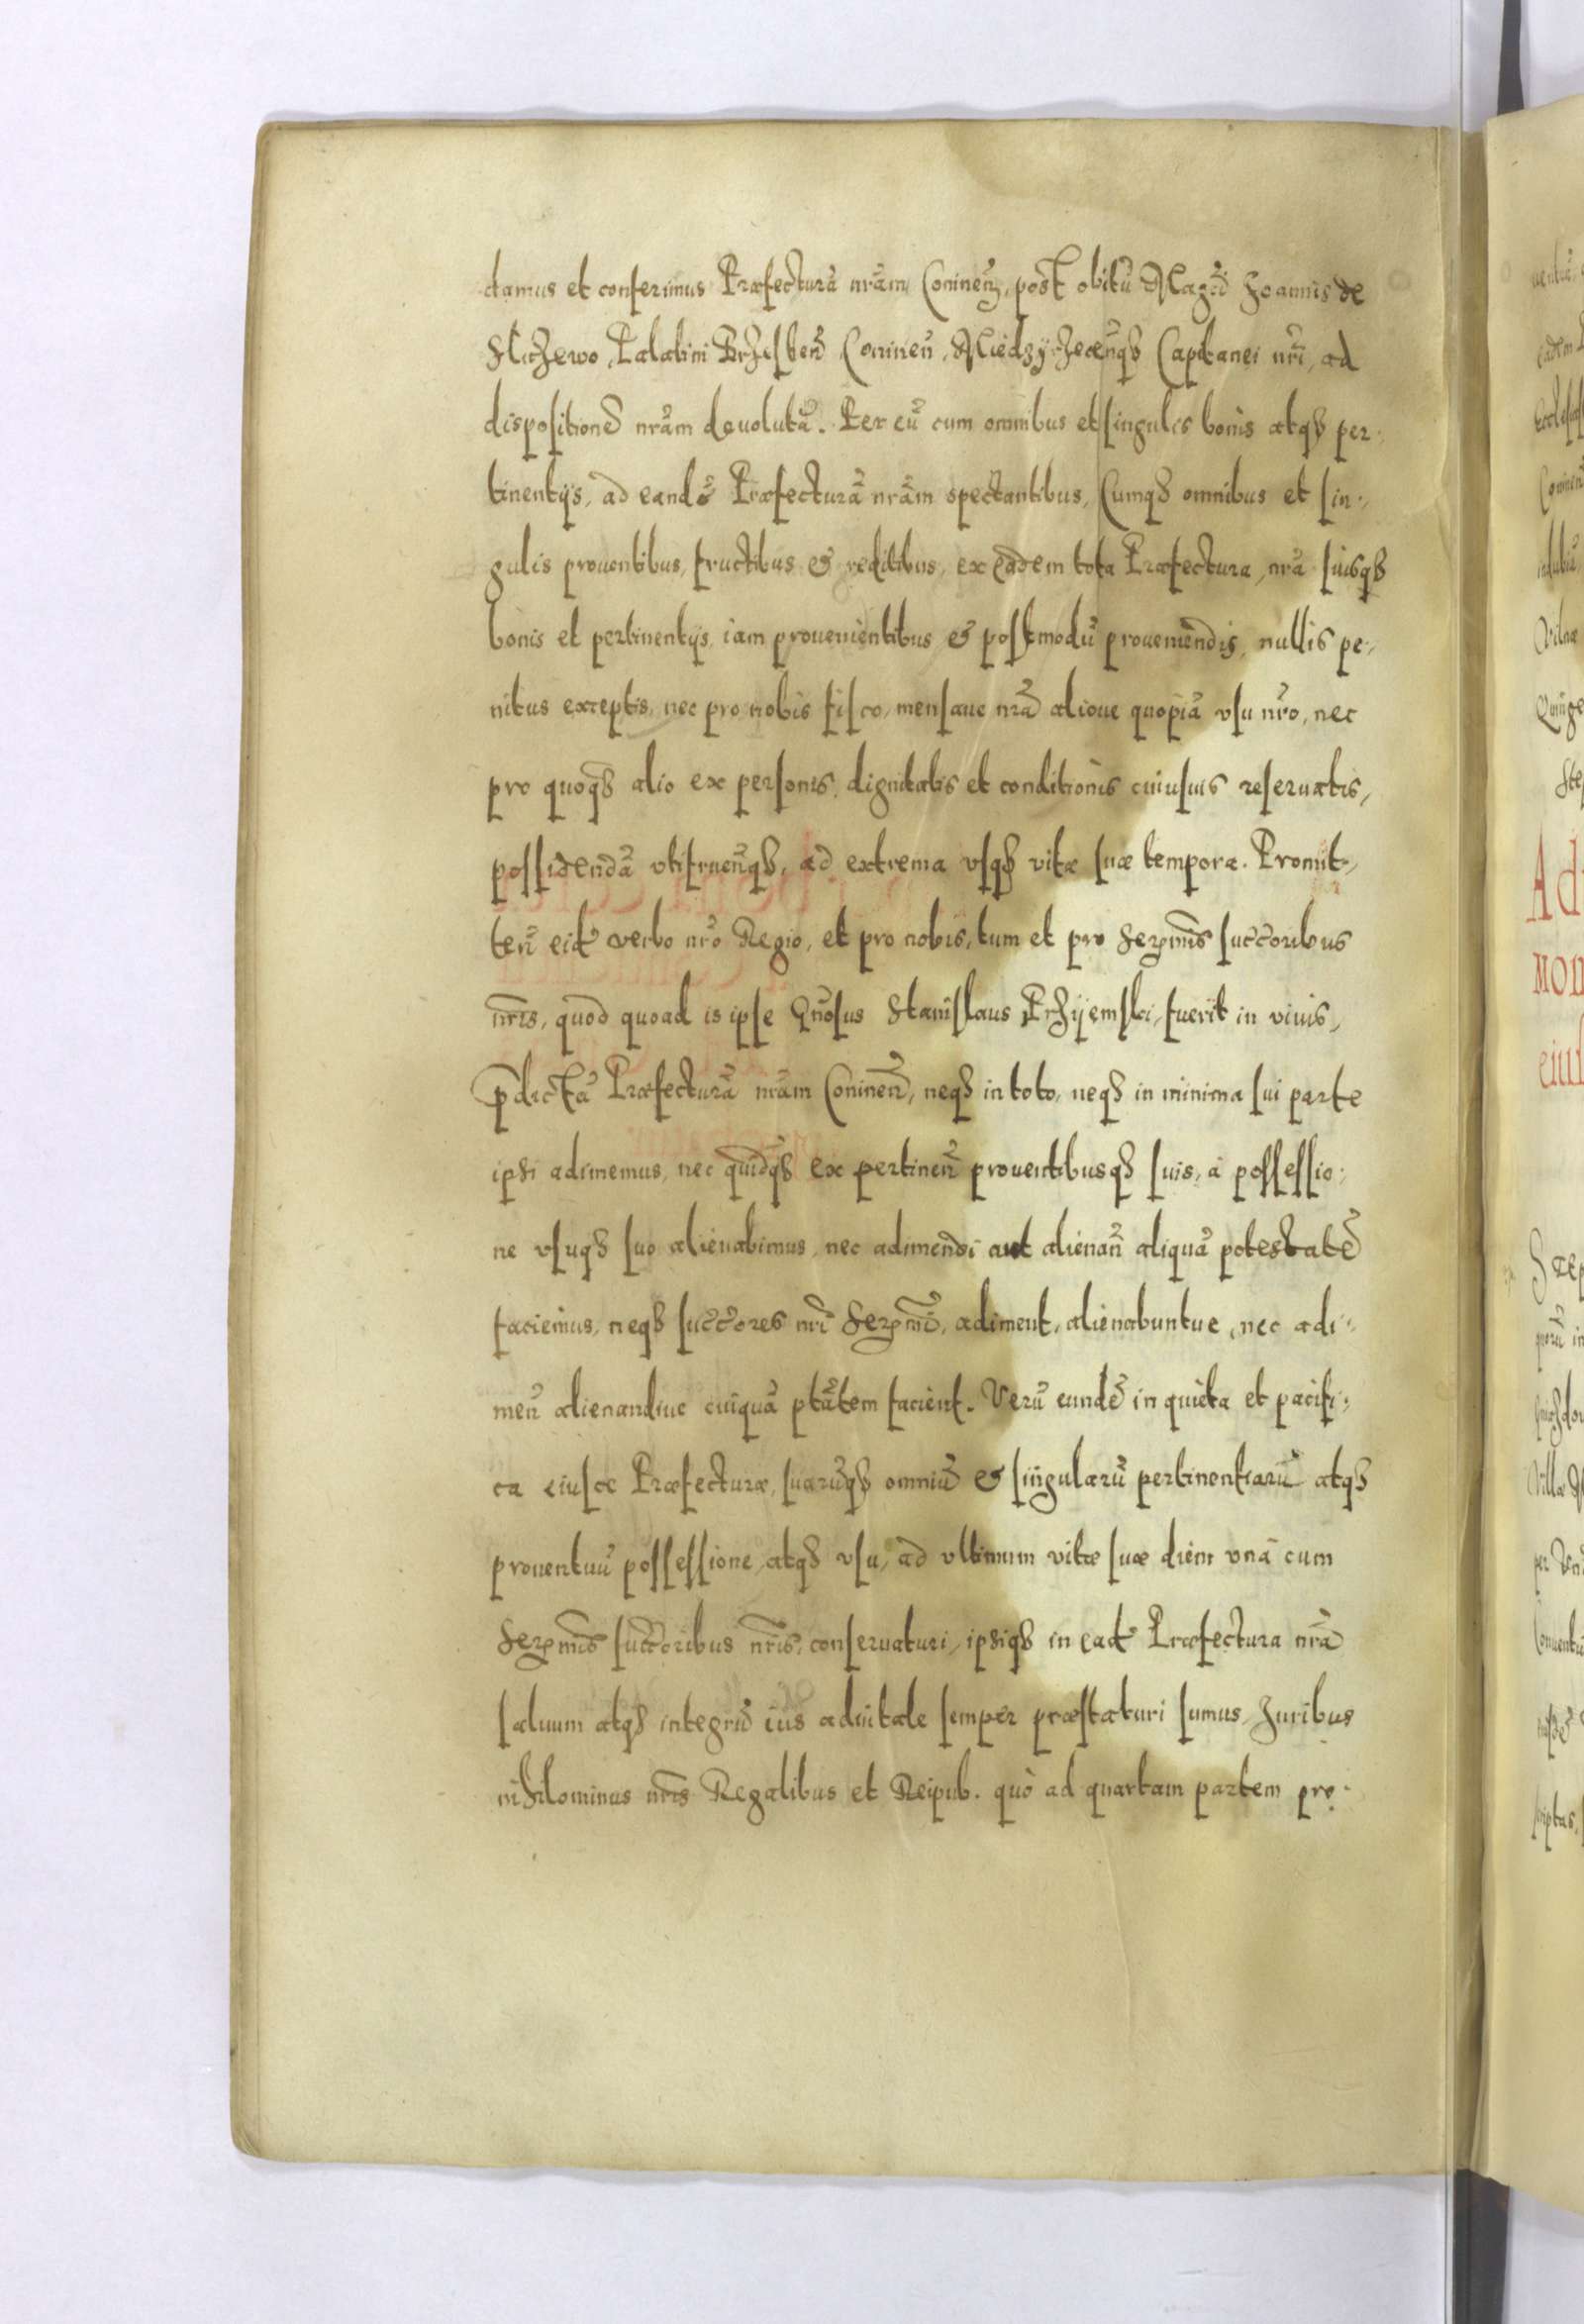 damus et conferimus Præfecturã nrãm Coninen̄, post obitũ Magcĩ Joannis de
Sluzewo, Palatini Brzesten̄ Coninen̄, Miedzyrzecen̄qȝ Capitanei nrĩ, ad
dispositionẽ nrãm deuolutã. Per eũ cum omnibus et singulis bonis atqȝ per-
tinentijs, ad eandẽ Præfecturã nrãm spectantibus, Cumqȝ omnibus et sin-
gulis prouentibus, fructibus & reditibus, ex eadem tota Præfectura nrã suisqȝ
bonis et pertinentijs, iam prouenientibus & postmodũ proueniendis, nullis pe-
nitus exceptis, nec pro nobis fisco, mensaue nrã alioue quopiã vsu nrõ, nec
pro quoqȝ alio ex personis, dignitatis et conditionis cuiusuis reseruatis,
possidendã vtifruen̄qȝ, ad extrema vsqȝ vitæ suæ tempora. Promit-
ten̄ eid̃ verbo nrõ Regio, et pro nobis, tum et pro Serenm̃is succ̃oribus
nrĩs, quod quoad is ipse Gn̄osus Stanislaus Przyjemski, fuerit in viuis,
p̃dictã Præfecturã nrãm Coninen̄, neqȝ in toto, neqȝ in minima sui parte
ipsi adimemus, nec quidqȝ ex pertinen̄ prouentibusqȝ suis, à possessio-
ne vsuqȝ suo alienabimus, nec adimendi aut alienan̄ aliquã potestatẽ
faciemus, neqȝ succ̃ores nrĩ Serenm̃i, adiment, alienabuntue, nec adi-
men̄ alienandiue cuiquã ptãtem facient. Verũ eundẽ in quieta et pacifi-
ca eiusce Præfecturæ, suarũqȝ omniũ & singularũ pertinentiarũ atqȝ
prouentuũ possessione, atqȝ vsu, ad vltimum vitæ suæ diem vnà cum
Serenm̃is succ̃oribus nrĩs, conseruaturi, ipsiqȝ in ead̃ Præfectura nrã
saluum atqȝ integrũ ius aduitale semper præstaturi sumus, Juribus
nihilominus nrĩs Regalibus et Reipub. quò ad quartam partem pro-